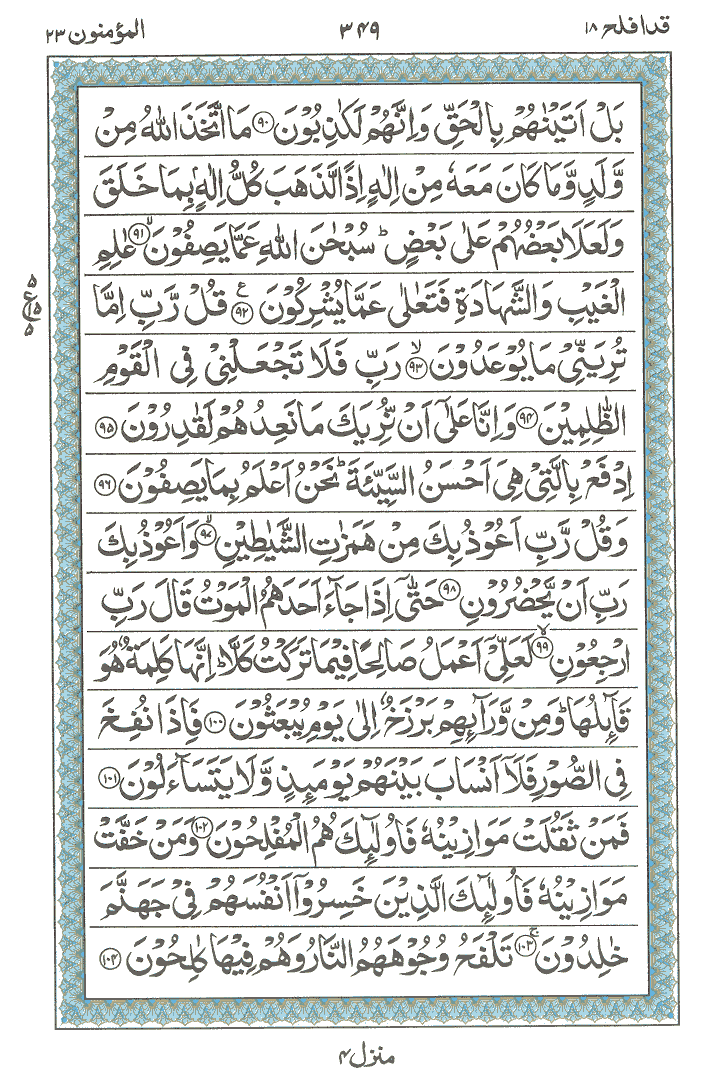 قد افلح ١٨ ٣٤٩ المؤمنون ٢٣
بَلْ اَتَيْنٰهُمْ بِالْحَقِّ وَاِنَّهُمْ لَكٰذِبُوْنَ ۝٩٠ مَا اتَّخَذَ اللّٰهُ مِنْ
وَّلَدٍ وَّمَا كَانَ مَعَهٗ مِنْ اِلٰهٍ اِذًا لَّذَهَبَ كُلُّ اِلٰهٍۭ بِمَا خَلَقَ
وَلَعَلَا بَعْضُهُمْ عَلٰى بَعْضٍ ؕ سُبْحٰنَ اللّٰهِ عَمَّا يَصِفُوْنَ ۝٩١ۙ عٰلِمِ
الْغَيْبِ وَالشَّهَادَةِ فَتَعٰلٰى عَمَّا يُشْرِكُوْنَ ۝٩٢ ع قُلْ رَّبِّ اِمَّا
تُرِيَنِّيْ مَا يُوْعَدُوْنَ ۝٩٣ۙ رَبِّ فَلَا تَجْعَلْنِيْ فِى الْقَوْمِ
الظّٰلِمِيْنَ ۝٩٤ وَاِنَّا عَلٰٓى اَنْ نُّرِيَكَ مَا نَعِدُهُمْ لَقٰدِرُوْنَ ۝٩٥
اِدْفَعْ بِالَّتِيْ هِيَ اَحْسَنُ السَّيِّئَةَ ؕ نَحْنُ اَعْلَمُ بِمَا يَصِفُوْنَ ۝٩٦
وَقُلْ رَّبِّ اَعُوْذُ بِكَ مِنْ هَمَزٰتِ الشَّيٰطِيْنِ ۝٩٧ۙ وَاَعُوْذُ بِكَ
رَبِّ اَنْ يَّحْضُرُوْنِ ۝٩٨ حَتّٰٓى اِذَا جَآءَ اَحَدَهُمُ الْمَوْتُ قَالَ رَبِّ
ارْجِعُوْنِ ۝٩٩ۙ لَعَلِّيْٓ اَعْمَلُ صَالِحًا فِيْمَا تَرَكْتُ كَلَّا ؕ اِنَّهَا كَلِمَةٌ هُوَ
قَآئِلُهَا ؕ وَمِنْ وَّرَآئِهِمْ بَرْزَخٌ اِلٰى يَوْمِ يُبْعَثُوْنَ ۝١٠٠ فَاِذَا نُفِخَ
فِى الصُّوْرِ فَلَآ اَنْسَابَ بَيْنَهُمْ يَوْمَئِذٍ وَّلَا يَتَسَآءَلُوْنَ ۝١٠١
فَمَنْ ثَقُلَتْ مَوَازِيْنُهٗ فَاُولٰٓئِكَ هُمُ الْمُفْلِحُوْنَ ۝١٠٢ وَمَنْ خَفَّتْ
مَوَازِيْنُهٗ فَاُولٰٓئِكَ الَّذِيْنَ خَسِرُوْٓا اَنْفُسَهُمْ فِيْ جَهَنَّمَ
خٰلِدُوْنَ ۝١٠٣ۚ تَلْفَحُ وُجُوْهَهُمُ النَّارُ وَهُمْ فِيْهَا كٰلِحُوْنَ ۝١٠٤
منزل ٤